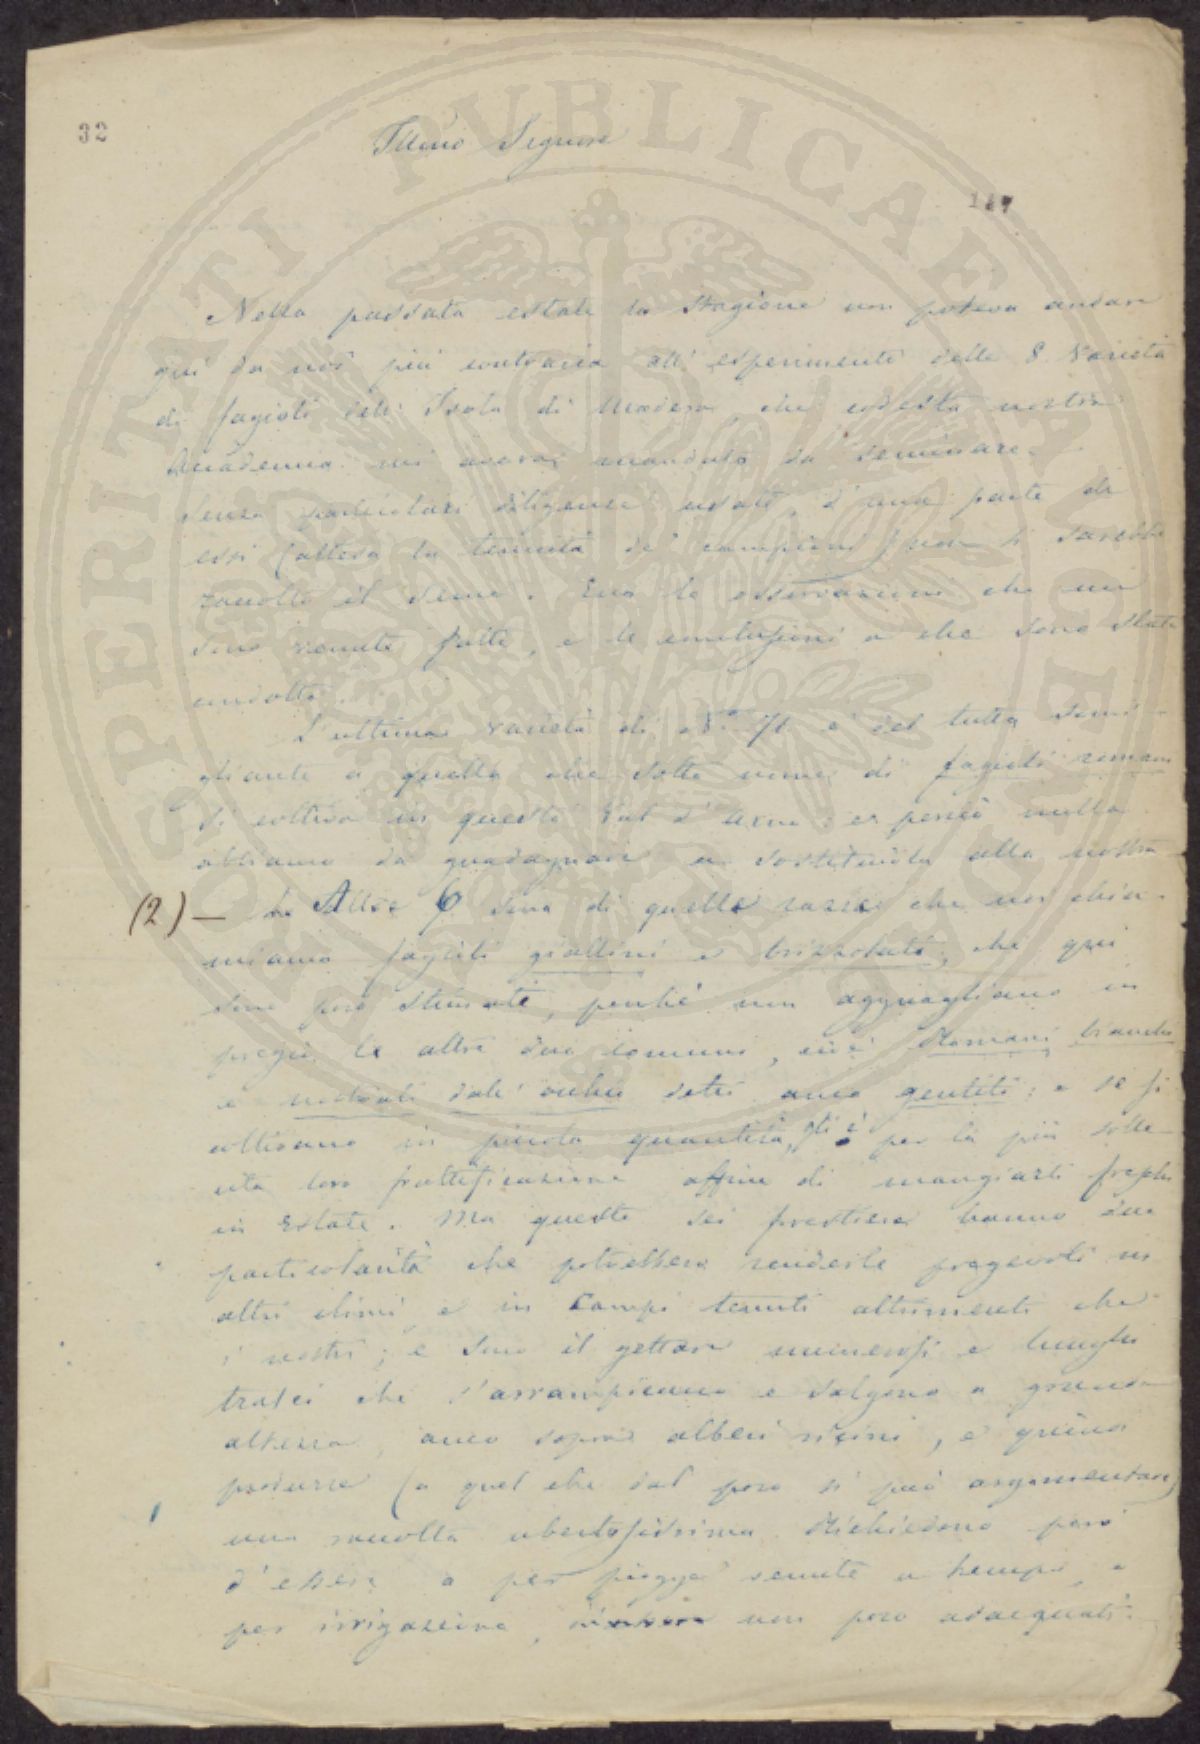 32
Illmo Signore
117
Nella passata estate la stagione non poteva andare
quì da noi più contraria all' esperimento delle 8 Varietà
di fagioli dell' Isola di Madera, che codesta nostra
Accademia mi aveva mandato da seminare.
Senza particolari diligenze usate, d'una parte di
essi (attesa la tenuità de' campioni) non si sarebbe
raccolto il seme. Ecco le osservazioni che mi
sono venute fatte, e le conclusioni a che sono state
condotte.
L'ultima varietà di No 71 è del tutto somi-
gliante a quella che sotto nome di fagioli romani
si coltiva in questo Val d'Arno: e perciò nulla
abbiamo da guadagnare a sostituirla alla nostra
(2) — Le Altre 6 sono di quelle razze che noi chia-
miamo fagioli giallini e brizzolati, che qui
sono poco stimati, perchè non agguagliano in
pregio le altre due comuni, cioè Romani bianchi
e dall' occhio detti anco gentili: e se si
coltivano in piccola quantità, gli è per la più solle-
cita loro fruttificazione affine di mangiarli freschi
in Estate. Ma queste sei forestiere hanno due
particolarità che potrebbero renderle pregevoli in
altri climi, e in Campi tenuti altrimenti che
i nostri; e sono il gettare numerosi e lunghi
tralci che s'arrampicano e salgono a grande
altezza, anco sopra alberi vicini, e quindi
produrre (a quel che dal poco si può argomentare)
una raccolta ubertosissima. Richiedono però
d'essere o per piogge venute a tempo, o
per irrigazione, non poco adacquati: